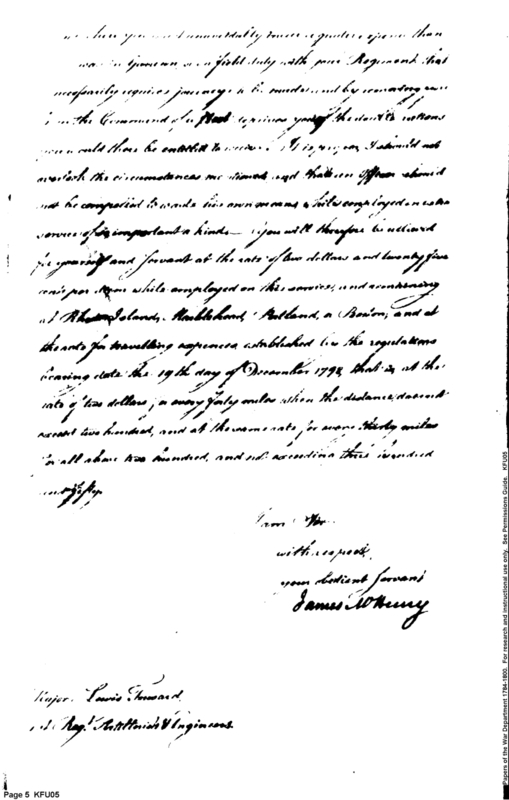 unavoidably incur a greater expence than
was in Garrison or on field duty with your Regiment that
necessarily requires journeys to be made and by removing you
from the Command of a deprives you of the double rations
you would there be entitled to receive. It is proper, I should not
overlook the circumstances mentioned and that an Officer should
not be compelled to waste his own means while employed on extra
service of so important a kind you will therefore be allowed
for yourself and servant at the rate of two dollars and twenty five
cents per diem while employed on this service, and continuing
at Rhode Island, Marblehead, Portland, or Boston, and at
the rate for travelling expences established by the regulations
bearing date the 19th day of December 1798 that is, at the
rate of two dollars, for every forty miles when the distance does not
exceed two hundred, and at the same rate for every thirty miles
for all above two hundred, and not exceeding three hundred
and fifty
I am &c
with respect
your obedient servant
James McHenry
Major Lewis Tousard
Regt. Artillerists & Engineers
Page 5 KFU05
Papers of the War Department 1784-1800. For research and instructional use only. See Permissions Guide. KFU05